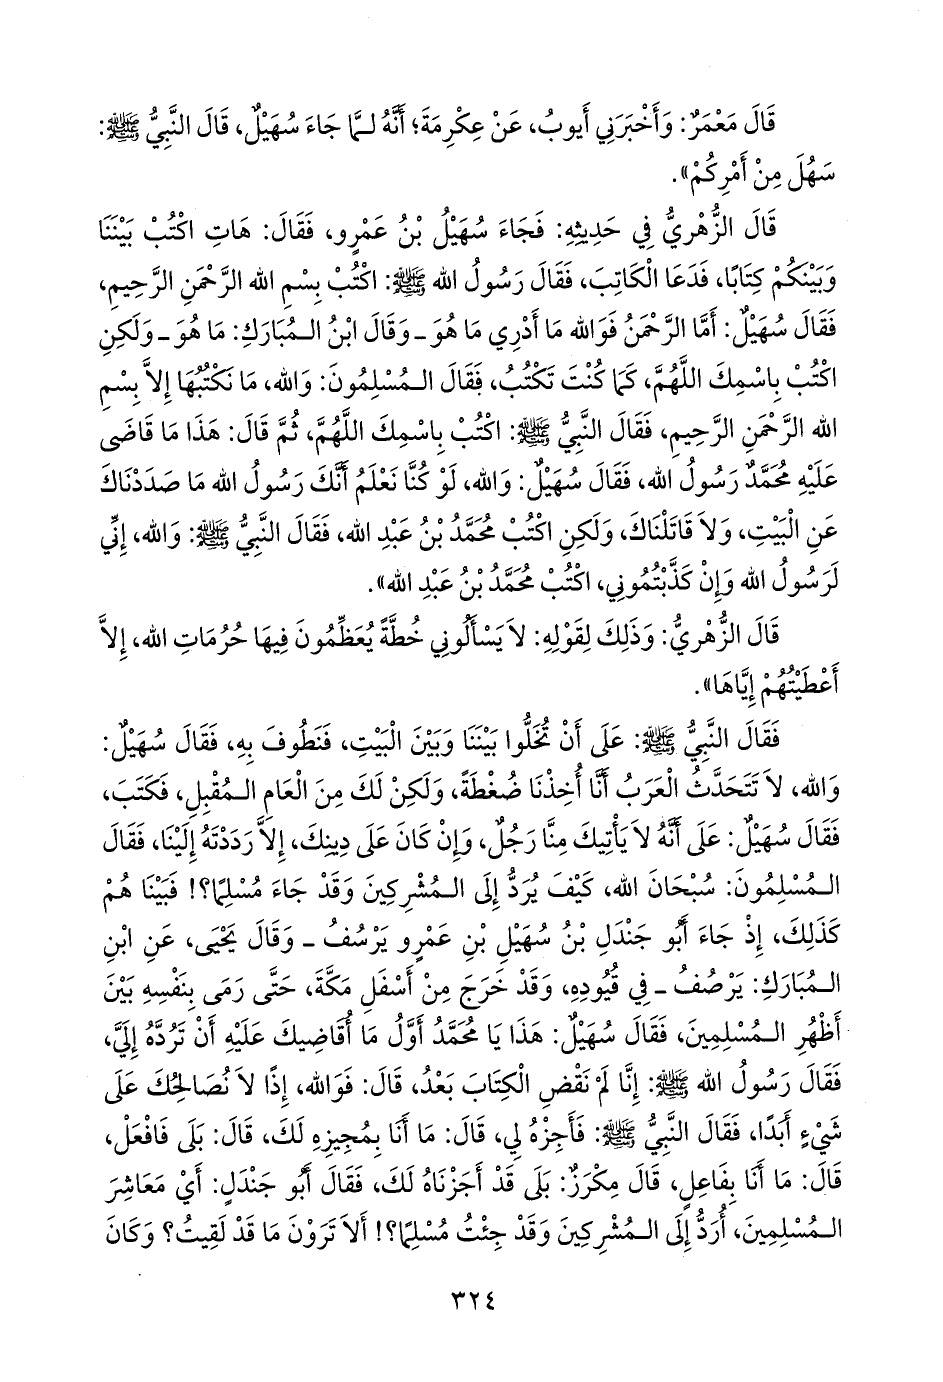 قَالَ مَعْمَرٌ: وَأَخْبَرَنِي أَيوبُ، عَنْ عِكْرِمَةَ؛ أَنَّهُ لـمَّا جَاءَ سُهَيْلٌ، قَالَ النَّبِيُّ ﷺ:
سَهُلَ مِنْ أَمْرِكُمْ».
قَالَ الزُّهْرِيُّ فِي حَدِيثِهِ: فَجَاءَ سُهَيْلُ بْنُ عَمْرٍو، فَقَالَ: هَاتِ اكْتُبْ بَيْنَنَا
وَبَيْنَكُمْ كِتَابًا، فَدَعَا الْكَاتِبَ، فَقَالَ رَسُولُ الله ﷺ: اكْتُبْ بِسْمِ الله الرَّحْمَنِ الرَّحِيمِ،
فَقَالَ سُهَيْلٌ: أَمَّا الرَّحْمَنُ فَوَالله مَا أَدْرِي مَا هُوَ ـ وَقَالَ ابْنُ الـمُبَارَكِ: مَا هُوَ ـ وَلَكِنِ
اكْتُبْ بِاسْمِكَ اللَّهُمَّ، كَمَا كُنْتَ تَكْتُبُ، فَقَالَ الـمُسْلِمُونَ: وَالله، مَا نَكْتُبُهَا إِلاَّ بِسْمِ
الله الرَّحْمَنِ الرَّحِيمِ، فَقَالَ النَّبِيُّ ﷺ: اكْتُبْ بِاسْمِكَ اللَّهُمَّ، ثُمَّ قَالَ: هَذَا مَا قَاضَى
عَلَيْهِ مُحَمَّدٌ رَسُولُ الله، فَقَالَ سُهَيْلٌ: وَالله، لَوْ كُنَّا نَعْلَمُ أَنَّكَ رَسُولُ الله مَا صَدَدْنَاكَ
عَنِ الْبَيْتِ، وَلاَ قَاتَلْنَاكَ، وَلَكِنِ اكْتُبْ مُحَمَّدُ بْنُ عَبْدِ الله، فَقَالَ النَّبِيُّ ﷺ: وَالله، إِنِّي
لَرَسُولُ الله وَإِنْ كَذَّبْتُمُونِي، اكْتُبْ مُحَمَّدُ بْنُ عَبْدِ الله».
قَالَ الزُّهْرِيُّ: وَذَلِكَ لِقَوْلِهِ: لاَ يَسْأَلُونِي خُطَّةً يُعَظِّمُونَ فِيهَا حُرُمَاتِ الله، إِلاَّ
أَعْطَيْتُهُمْ إِيَّاهَا».
فَقَالَ النَّبِيُّ ﷺ: عَلَى أَنْ تُخَلُّوا بَيْنَنَا وَبَيْنَ الْبَيْتِ، فَنَطُوفَ بِهِ، فَقَالَ سُهَيْلٌ:
وَالله، لاَ تَتَحَدَّثُ الْعَرَبُ أَنَّا أُخِذْنَا ضُغْطَةً، وَلَكِنْ لَكَ مِنَ الْعَامِ الـمُقْبِلِ، فَكَتَبَ،
فَقَالَ سُهَيْلٌ: عَلَى أَنَّهُ لاَ يَأْتِيكَ مِنَّا رَجُلٌ، وَإِنْ كَانَ عَلَى دِينِكَ، إِلاَّ رَدَدْتَهُ إِلَيْنَا، فَقَالَ
الـمُسْلِمُونَ: سُبْحَانَ الله، كَيْفَ يُرَدُّ إِلَى الـمُشْرِكِينَ وَقَدْ جَاءَ مُسْلِمًا؟! فَبَيْنَا هُمْ
كَذَلِكَ، إِذْ جَاءَ أَبُو جَنْدَلِ بْنُ سُهَيْلِ بْنِ عَمْرٍو يَرْسُفُ ـ وَقَالَ يَحْيَى، عَنِ ابْنِ
الـمُبَارَكِ: يَرْصُفُ ـ فِي قُيُودِهِ، وَقَدْ خَرَجَ مِنْ أَسْفَلِ مَكَّةَ، حَتَّى رَمَى بِنَفْسِهِ بَيْنَ
أَظْهُرِ الـمُسْلِمِينَ، فَقَالَ سُهَيْلٌ: هَذَا يَا مُحَمَّدُ أَوَّلُ مَا أُقَاضِيكَ عَلَيْهِ أَنْ تَرُدَّهُ إِلَيَّ،
فَقَالَ رَسُولُ الله ﷺ: إِنَّا لَمْ نَقْضِ الْكِتَابَ بَعْدُ، قَالَ: فَوَالله، إِذًا لاَ نُصَالِحُكَ عَلَى
شَيْءٍ أَبَدًا، فَقَالَ النَّبِيُّ ﷺ: فَأَجِزْهُ لِي، قَالَ: مَا أَنَا بِمُجِيزِهِ لَكَ، قَالَ: بَلَى فَافْعَلْ،
قَالَ: مَا أَنَا بِفَاعِلٍ، قَالَ مِكْرَزٌ: بَلَى قَدْ أَجَزْنَاهُ لَكَ، فَقَالَ أَبُو جَنْدَلٍ: أَيْ مَعَاشِرَ
الـمُسْلِمِينَ، أُرَدُّ إِلَى الـمُشْرِكِينَ وَقَدْ جِئْتُ مُسْلِمًا؟! أَلاَ تَرَوْنَ مَا قَدْ لَقِيتُ؟ وَكَانَ
٣٢٤